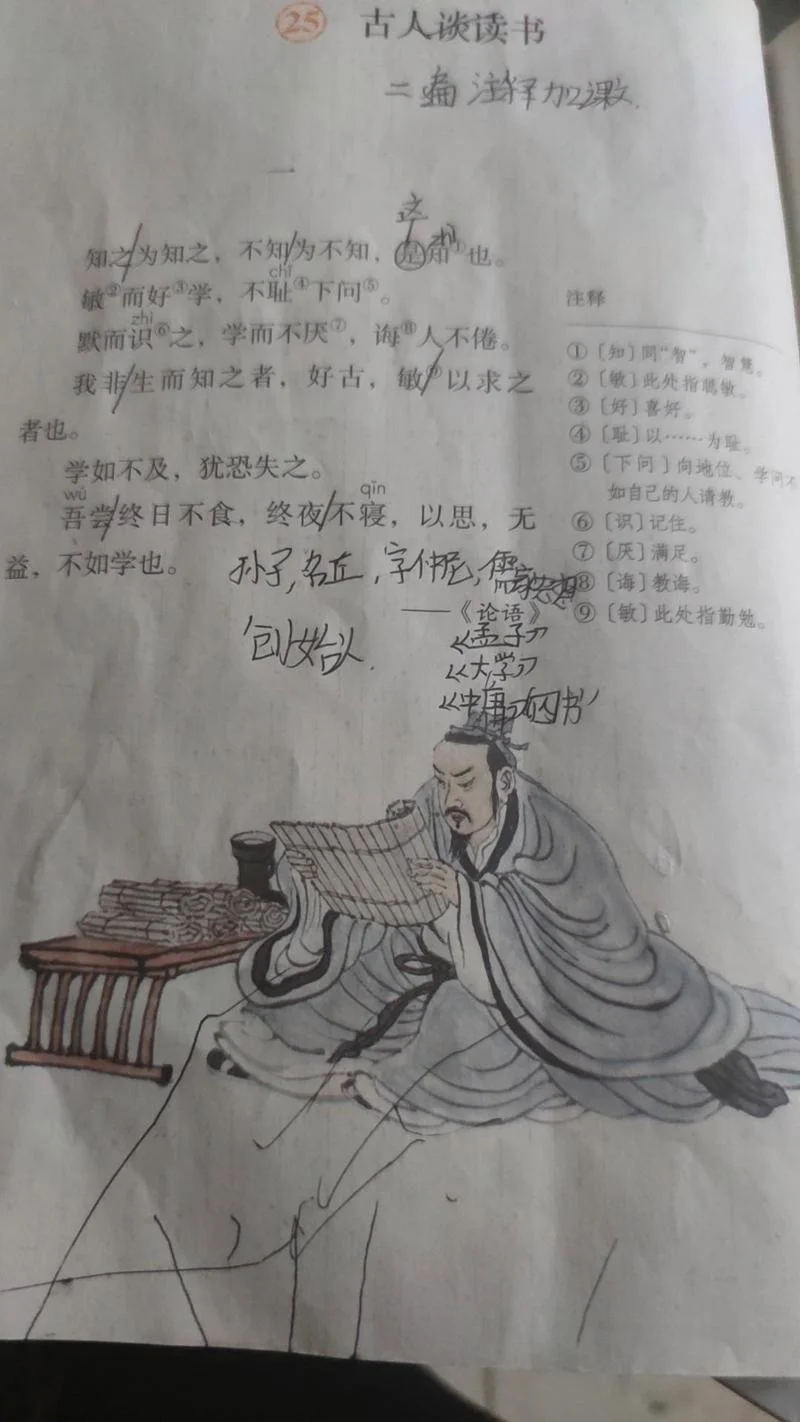 25 古人谈读书
二遍 注释加课文.
一
这
知之/为知之，不知/为不知，是知①也。
chǐ
敏②而好③学，不耻④下问⑤。
zhì
默而识⑥之，学而不厌⑦，诲⑧人不倦。
我非/生而知之者，好古，敏⑨/以求之
者也。
学如不及，犹恐失之。
wú qǐn
吾尝/终日不食，终夜/不寝，以思，无
益，不如学也。
——《论语》
孙子,名丘,字仲尼,儒家思想
创始人.
《孟子》
《大学》
《中庸》四书
注释
①〔知〕同“智”，智慧。
②〔敏〕此处指聪敏。
③〔好〕喜好。
④〔耻〕以……为耻。
⑤〔下问〕向地位、学问不
如自己的人请教。
⑥〔识〕记住。
⑦〔厌〕满足。
⑧〔诲〕教诲。
⑨〔敏〕此处指勤勉。